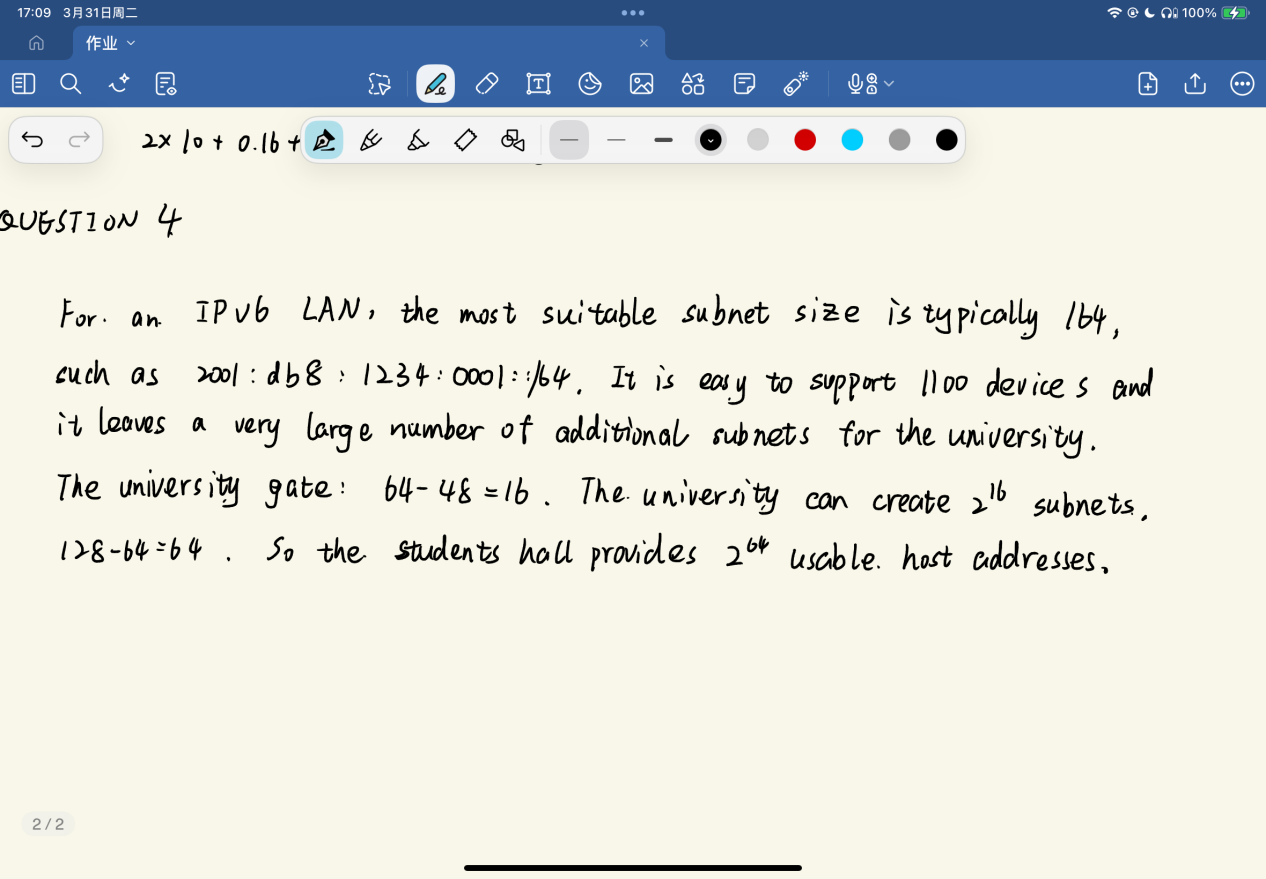 17:09 3月31日周二
100%
作业
2× 10 + 0.16 +
QUESTION 4
For. an. IPv6 LAN, the most suitable subnet size is typically /64,
such as 2001:db8:1234:0001::/64. It is easy to support 1100 devices and
it leaves a very large number of additional subnets for the university.
The university gate: 64-48=16. The university can create 2^16 subnets.
128-64=64. So the students hall provides 2^64 usable. host addresses.
2/2